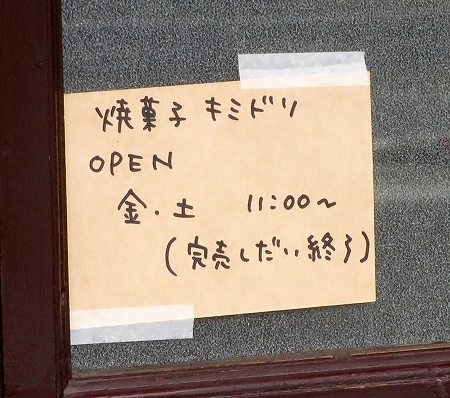 焼菓子 キミドリ
OPEN
金・土 11:00〜
(完売しだい終了)